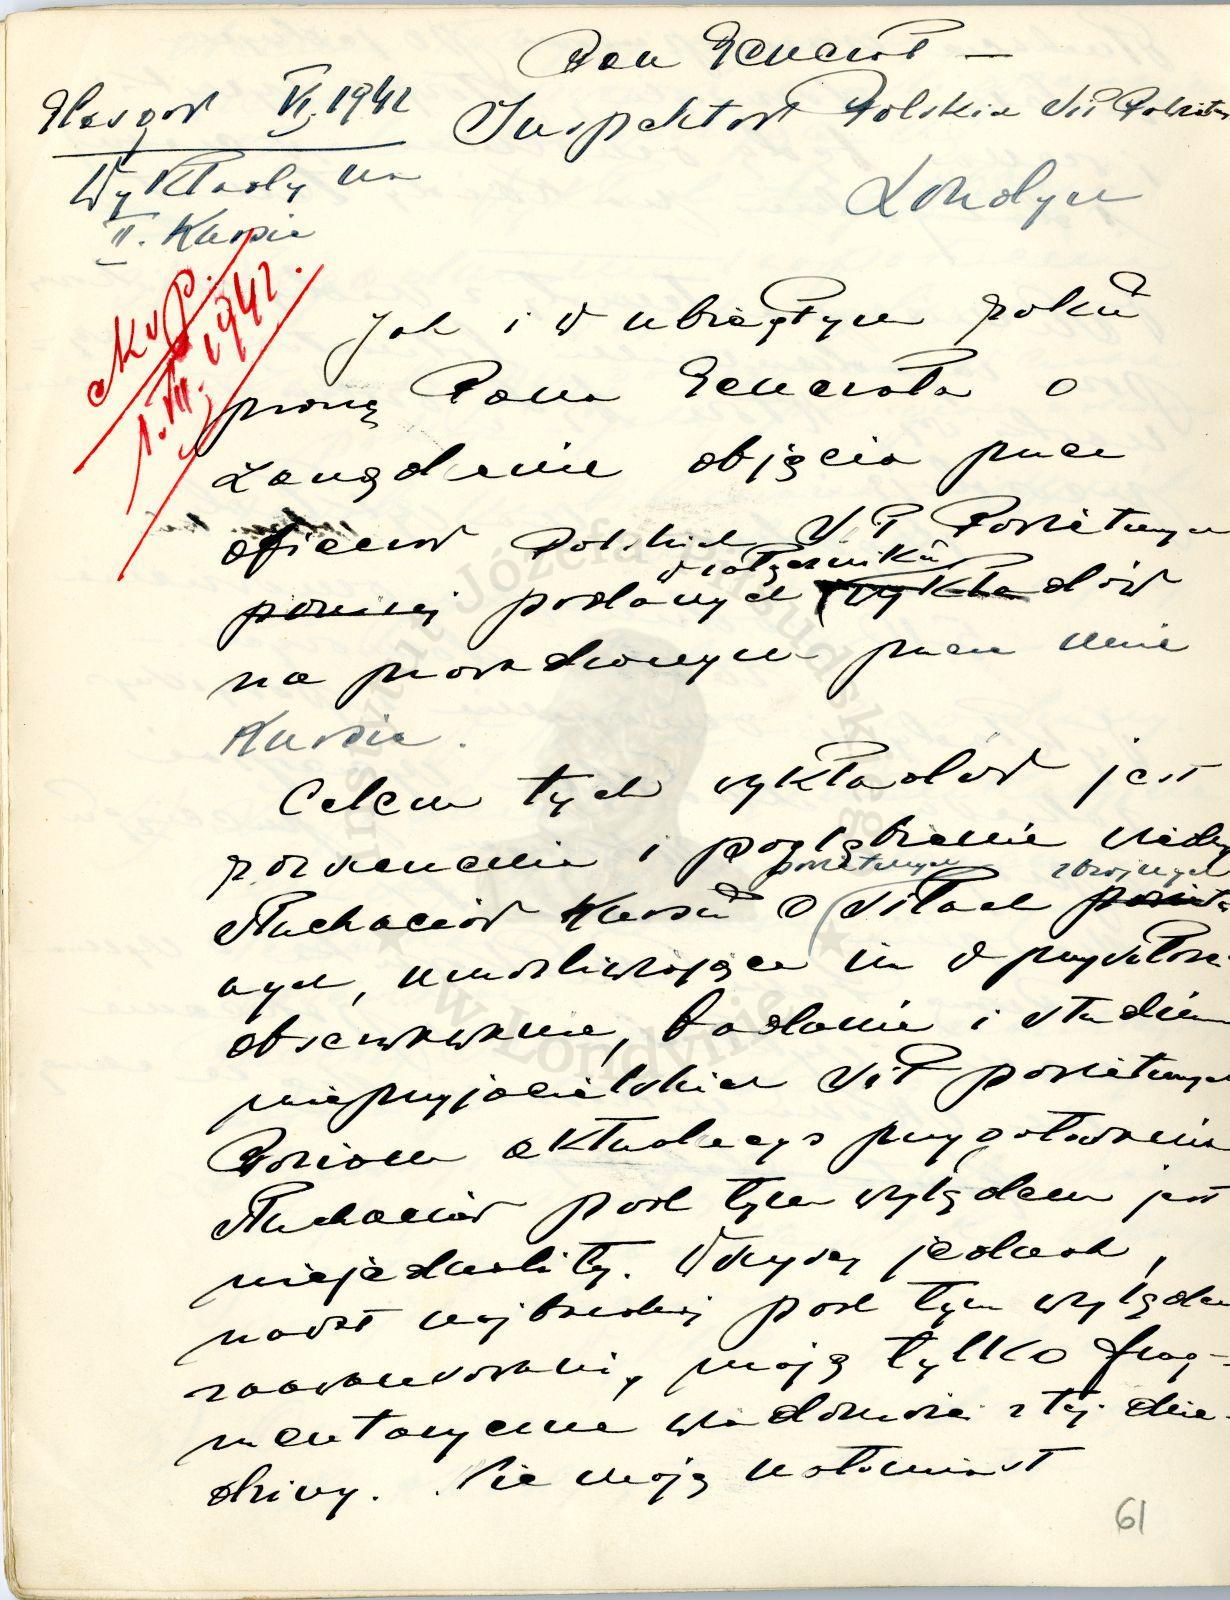 Pan Generał —
Glasgow VI. 1942
Inspektor Polskich Sił Powietrz
Wykłady na
II. Kursie
Londyn
1.VII.1942.
Jak i w ubiegłym roku
proszę Pana Generała o
zarządzenie objęcia przez
oficerów Polskich Sił Powietrznych
w załączniku
poniżej podanych wykładów
na prowadzonym przez mnie
Kursie.
Celem tych wykładów jest
rozszerzenie i pogłębienie wiedzy
powietrznych zbrojnych
słuchaczów Kursu o siłach powietrz
nych, umożliwiające im w przyszłości
obserwowanie, badanie i studium
nieprzyjacielskich sił powietrznych
Poziom aktualnego przygotowania
słuchaczów pod tym względem jest
niejednolity. Wszyscy jednak,
nawet najbardziej pod tym względem
zaawansowani, mają tylko frag-
mentaryczne wiadomości z tej dzie-
dziny. Nie mają natomiast
61
Instytut Józefa Piłsudskiego
w Londynie